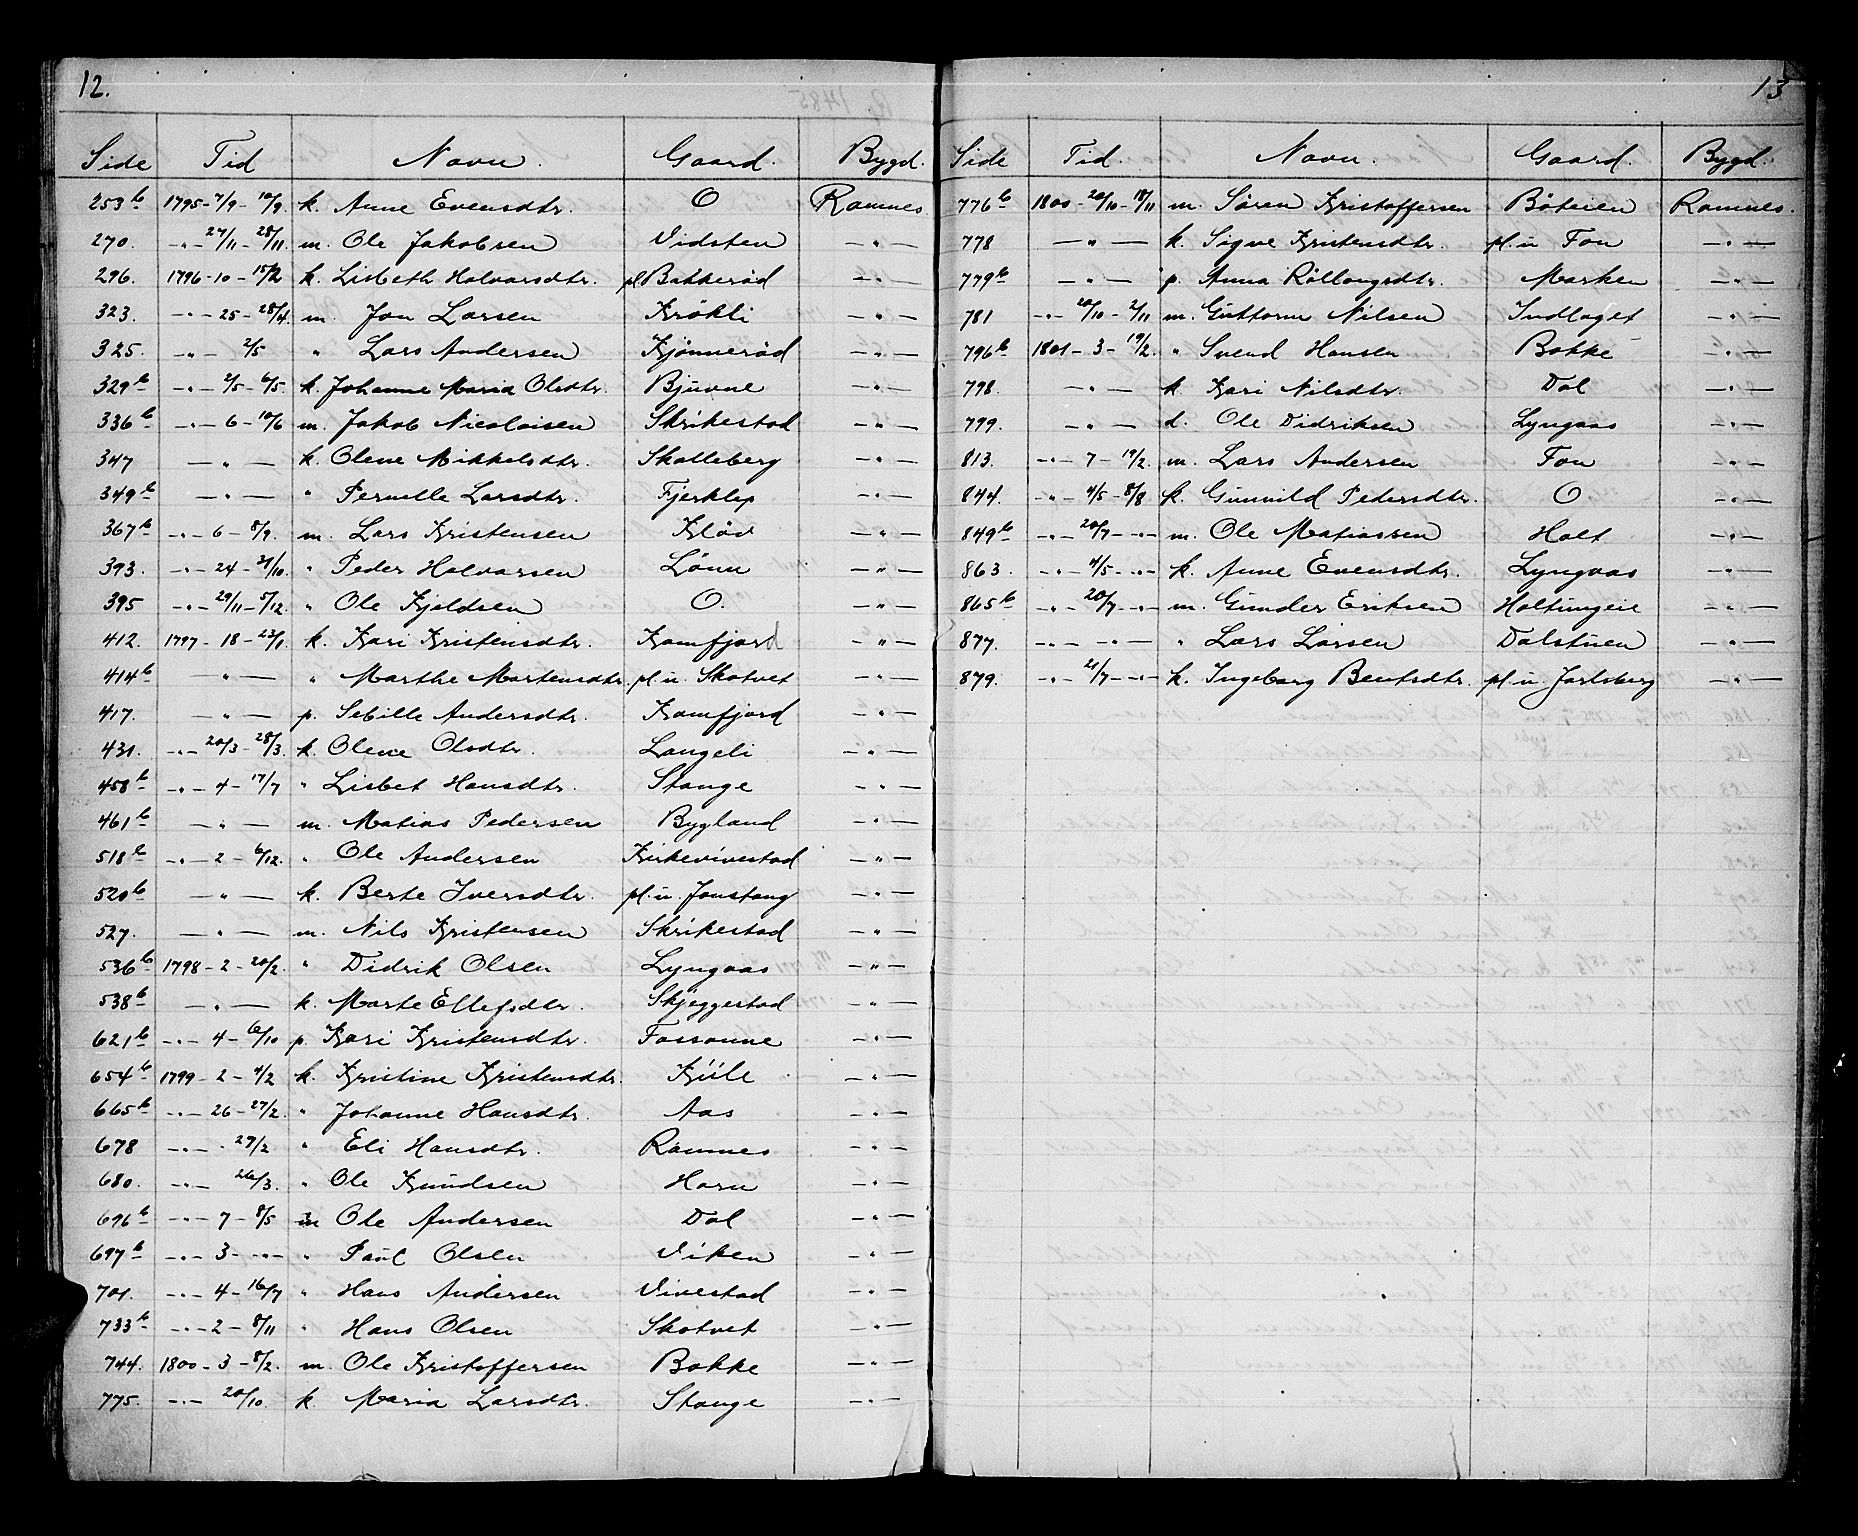 12.
Side Tid Navn. Gaard. Bygd.
253 b 1795 - 7/9 - 10/9. k. Anne Evensdtr. O Ramnes
270. -"- 27/11 - 28/11. m. Ole Jakobsen Vidsten -"-
296. 1796 - 10 - 15/2 k. Lisbeth Halvarsdtr. pl Bakkerød -"-
323. -"- 25 - 28/4. m. Jon Larsen Krøkli -"-
325. -"- 2/5 " Lars Andersen Kjønnerød -"-
329 b -"- 2/5 - 6/5. k. Johanne Maria Olsdtr. Bjuvne -"-
336 b -"- 6 - 10/6 m. Jakob Nicolaisen Skrikestad -"-
347 -"- k. Olene Mikkelsdtr. Skalleberg -"-
349 b -"- " Pernille Larsdtr. Fjerklep -"-
367 b -"- 6 - 8/9. m. Lars Kristensen Kløv -"-
393. -"- 24 - 31/10. " Peder Halvarsen Lønn -"-
395 -"- 29/11 - 5/12. " Ole Kjeldsen O. -"-
412. 1797 - 18 - 23/1. k. Kari Kristensdtr. Kamfjord -"-
414 b -"- " Marthe Martensdtr. pl. u. Skatvet -"-
417. -"- p. Sebille Andersdtr. Kamfjord -"-
431. -"- 20/3 - 28/3. k. Olene Olsdtr. Langeli -"-
458 b -"- 4 - 17/7 " Lisbet Hansdtr. Stange -"-
461 b -"- m. Matias Pedersen Bygland -"-
518 b -"- 2 - 6/12. " Ole Andersen Kirkevivestad -"-
520 b -"- k. Berte Iversdtr. pl. u. Jonstang -"-
527. -"- m. Nils Kristensen Skrikestad -"-
536 b 1798 - 2 - 20/2. " Didrik Olsen Lyngaas -"-
538 b -"- k. Marte Ellefsdtr. Skjeggestad -"-
621 b -"- 4 - 6/10 p. Kari Kristensdtr. Fossanne -"-
654 b 1799 - 2 - 4/2 k. Kristine Kristensdtr. Kiile -"-
665 b -"- 26 - 27/2. " Johanne Hansdtr. Aas -"-
678 -"- 27/2 " Eli Hansdtr. Ramnes -"-
680. -"- 26/3. " Ole Knudsen Horn -"-
696 b -"- 7 - 8/5 m Ole Andersen Dal -"-
697 b -"- 3 - -"- " Paul Olsen Viken -"-
701. -"- 4 - 16/7 " Hans Andersen Vivestad -"-
733 b -"- 2 - 8/11 " Hans Olsen Skatvet -"-
744. 1800 - 3 - 8/2. m. Ole Kristoffersen Bakke -"-
775. -"- 20/10. k Maria Larsdtr. Stange -"-
13
Side Tid. Navn. Gaard. Bygd.
776 b 1800 - 20/10 - 18/11 m. Søren Kristoffersen Bøteien Ramnes.
778 -"- k. Sigve Kristensdtr. pl. u Fon -"-
779 b -"- p. Anna Rollaugsdtr. Marken -"-
781 -"- 20/10 - 2/11 m. Guttorm Nilsen Indlaget -"-
796 b 1801 - 3 - 19/2. " Svend Hansen Bakke -"-
798. -"- k Kari Nilsdtr. Dal -"-
799. -"- d. Ole Didriksen Lyngaas -"-
813. -"- 7 - 19/2. m. Lars Andersen Fon -"-
844. -"- 4/5 - 8/8 k. Gunvild Pedersdtr. O -"-
849 b -"- 20/7 -"- m. Ole Matiassen Holt -"-
863. -"- 4/5 -"- k. Anne Evensdtr. Lyngaas -"-
865 b -"- 20/7 -"- m. Gunder Eriksen Holtungeie -"-
877. -"- -"- " Lars Larsen Dalstuen -"-
879. -"- 21/7 -"- k. Ingeborg Bentsdtr. pl. u. Jarlsberg -"-